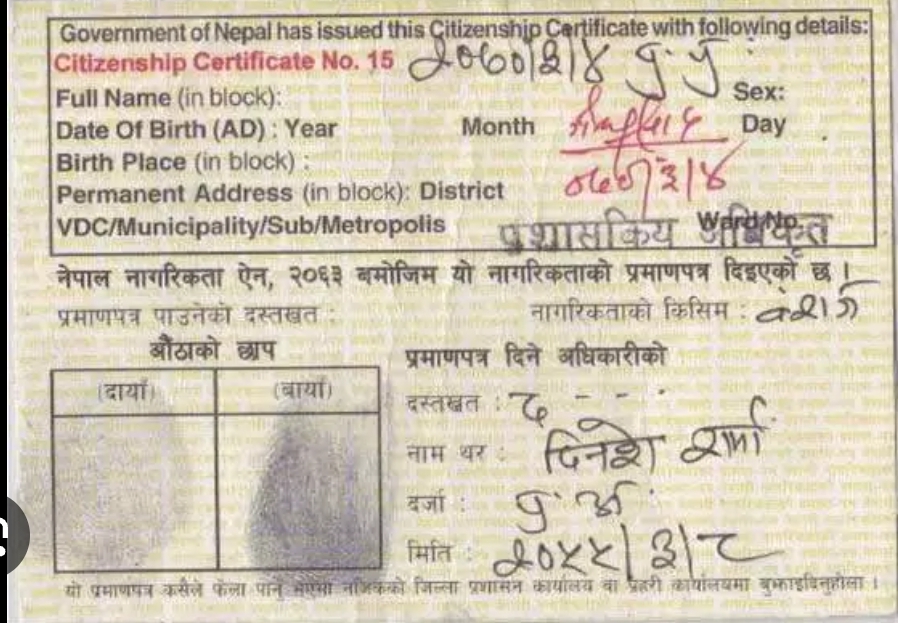 Government of Nepal has issued this Citizenship Certificate with following details:
Citizenship Certificate No. 15 २०६०|३|४ प्र. प्र.
Full Name (in block): Sex:
Date Of Birth (AD) : Year Month Day
Birth Place (in block) : ०६०|३|४
Permanent Address (in block): District
VDC/Municipality/Sub/Metropolis Ward No.
प्रशासकिय अधिकृत
नेपाल नागरिकता ऐन, २०६३ बमोजिम यो नागरिकताको प्रमाणपत्र दिइएको छ ।
प्रमाणपत्र पाउनेको दस्तखत : नागरिकताको किसिम : वंशज
औंठाको छाप
प्रमाणपत्र दिने अधिकारीको
(दायाँ) (बायाँ)
दस्तखत : द
नाम थर : दिनेश शर्मा
दर्जा : प्र. अ.
मिति : २०५५|३|८
यो प्रमाणपत्र कसैले फेला पारेमा नजिकको जिल्ला प्रशासन कार्यालय वा प्रहरी कार्यालयमा बुझाइदिनुहोला ।